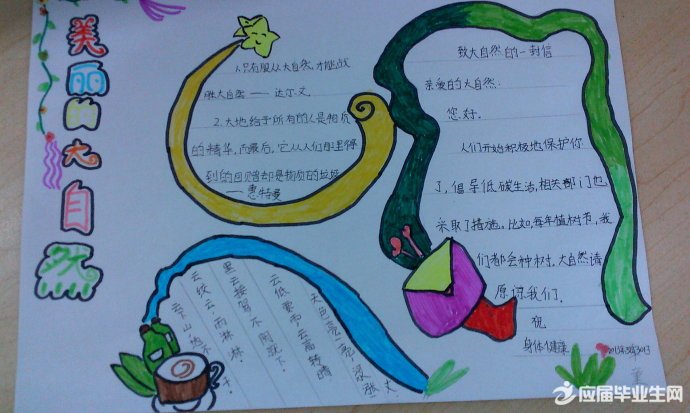 美丽的大自然
1.只有服从大自然,才能战
胜大自然——达尔文
2.大地给予所有的人是物质
的精华,而最后,它从人们那里得
到的回赠却是物质的垃圾
——惠特曼
致大自然的一封信
亲爱的大自然:
您好.
人们开始积极地保护你
了,倡导低碳生活,相关部门也
采取了措施。比如,每年植树节,我
们都会种树.大自然请
原谅我们.
祝
身体健康
天色亮一亮,河水涨一丈
云低要雨,云高转晴
黑云接驾,不阴就下.
云绞云,雨淋淋.
应届毕业生网